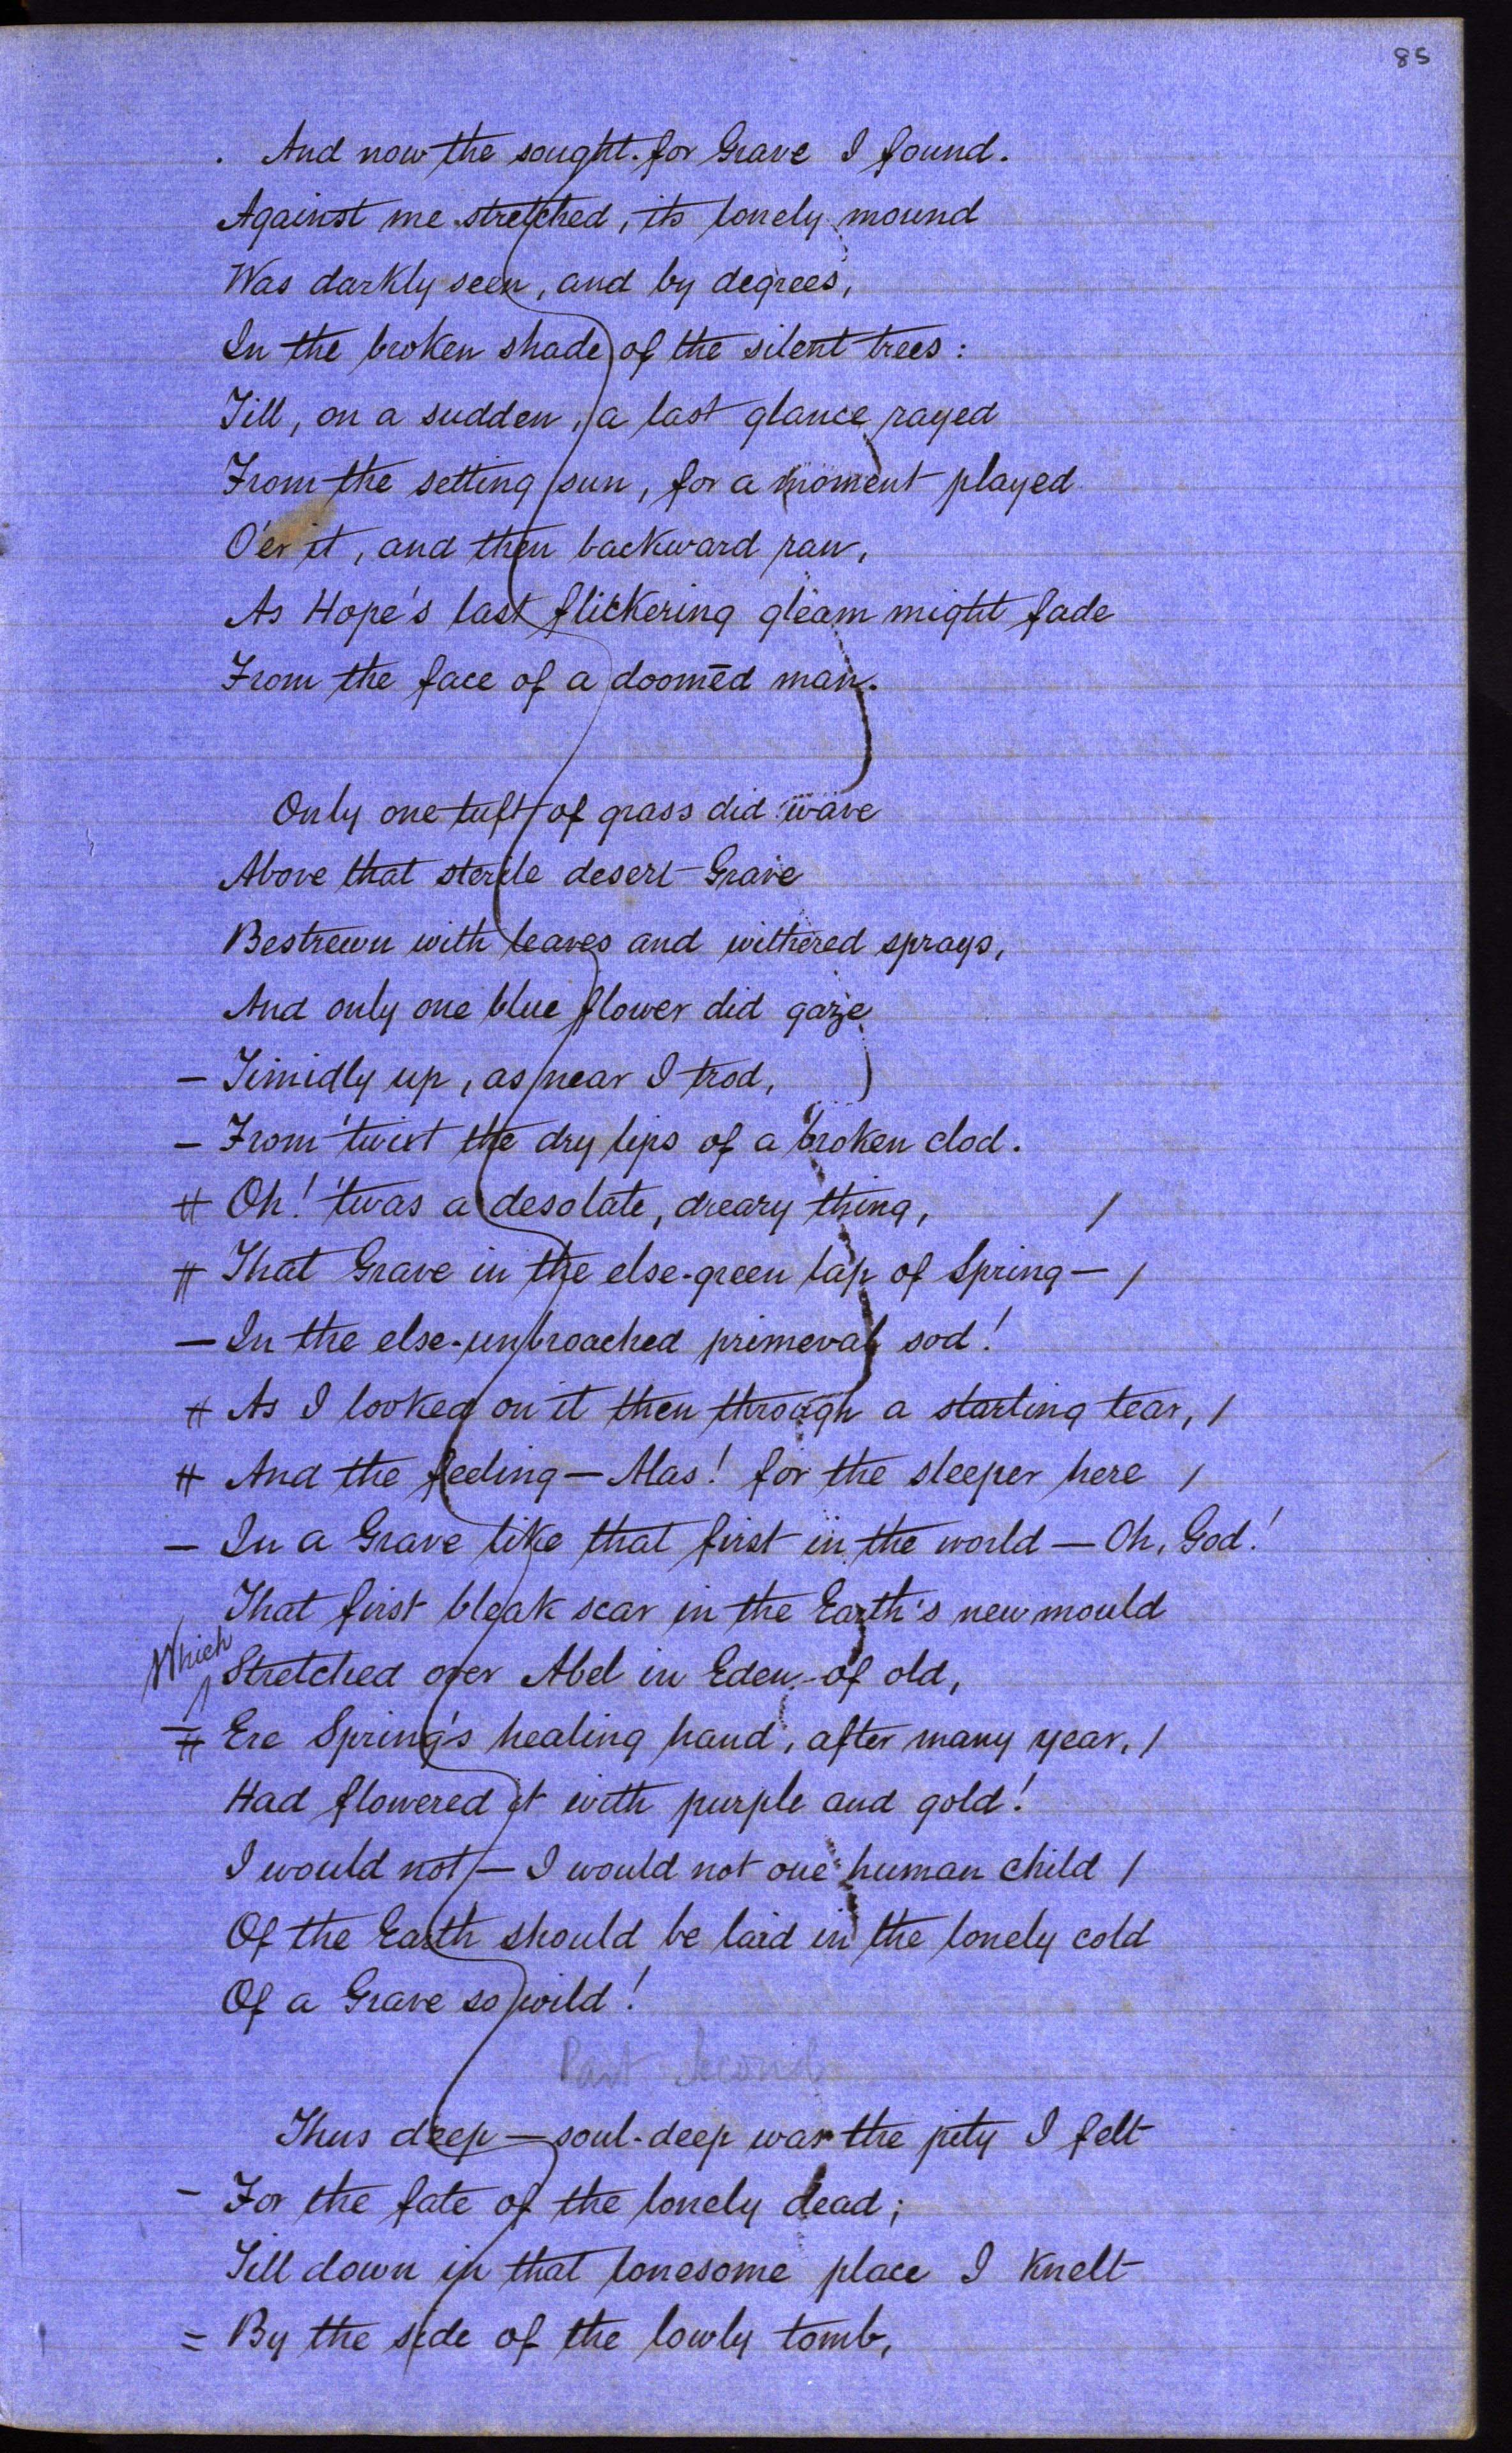 85
And now the sought-for Grave I found.
Against me stretched, its lonely mound
Was darkly seen, and by degrees,
In the broken shade of the silent trees:
Till, on a sudden, a last glance rayed
From the setting sun, for a moment played
O'er it, and then backward ran,
As Hope's last flickering gleam might fade
From the face of a doomēd man.
Only one tuft of grass did wave
Above that sterile desert Grave
Bestrewn with leaves and withered sprays,
And only one blue flower did gaze
— Timidly up, as near I trod,
— From 'twixt the dry lips of a broken clod.
# Oh! 'twas a desolate, dreary thing, /
# That Grave in the else-green lap of Spring — /
— In the else-unbroached primeval sod!
# As I looked on it then through a starting tear, /
# And the feeling — Alas! for the sleeper here /
— In a Grave like that first in the world — Oh, God!
That first bleak scar in the Earth's new mould
Which
Stretched over Abel in Eden of old,
# Ere Spring's healing hand, after many year, /
Had flowered it with purple and gold!
I would not — I would not one human child /
Of the Earth should be laid in the lonely cold
Of a Grave so wild!
Part Second
Thus deep — soul-deep was the pity I felt
– For the fate of the lonely dead;
Till down in that lonesome place I knelt
= By the side of the lowly tomb,